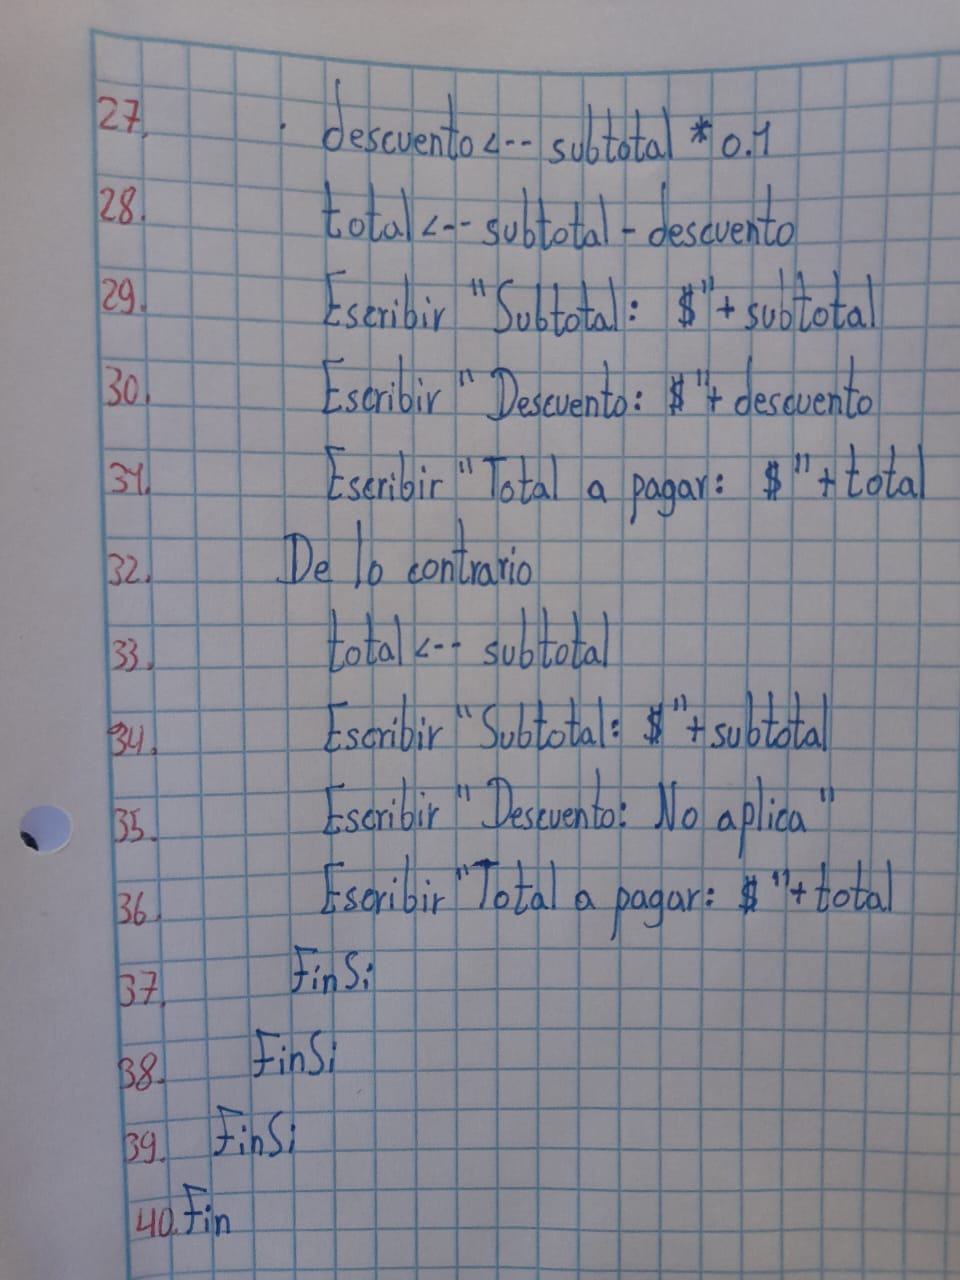 27. descuento <-- subtotal * 0.1
28. total <-- subtotal - descuento
29. Escribir "Subtotal: $" + subtotal
30. Escribir "Descuento: $" + descuento
31. Escribir "Total a pagar: $" + total
32. De lo contrario
33. total <-- subtotal
34. Escribir "Subtotal: $" + subtotal
35. Escribir "Descuento: No aplica"
36. Escribir "Total a pagar: $" + total
37. FinSi
38. FinSi
39. FinSi
40. Fin